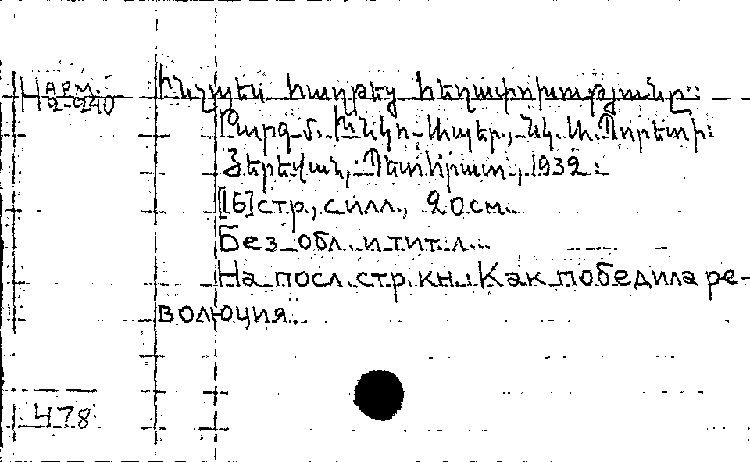 АРМ.
2-940
Ինչպես հաղթեց հեղափոխությունը։
Թարգմ. Խնկո-Ապեր, նկ. Ա.
Յերեվան, Պետհրատ, 1932.
[16] стр., с илл., 20 см.
Без обл. и тит. л.
На посл. стр. кн.: Как победила ре-
волюция.
478